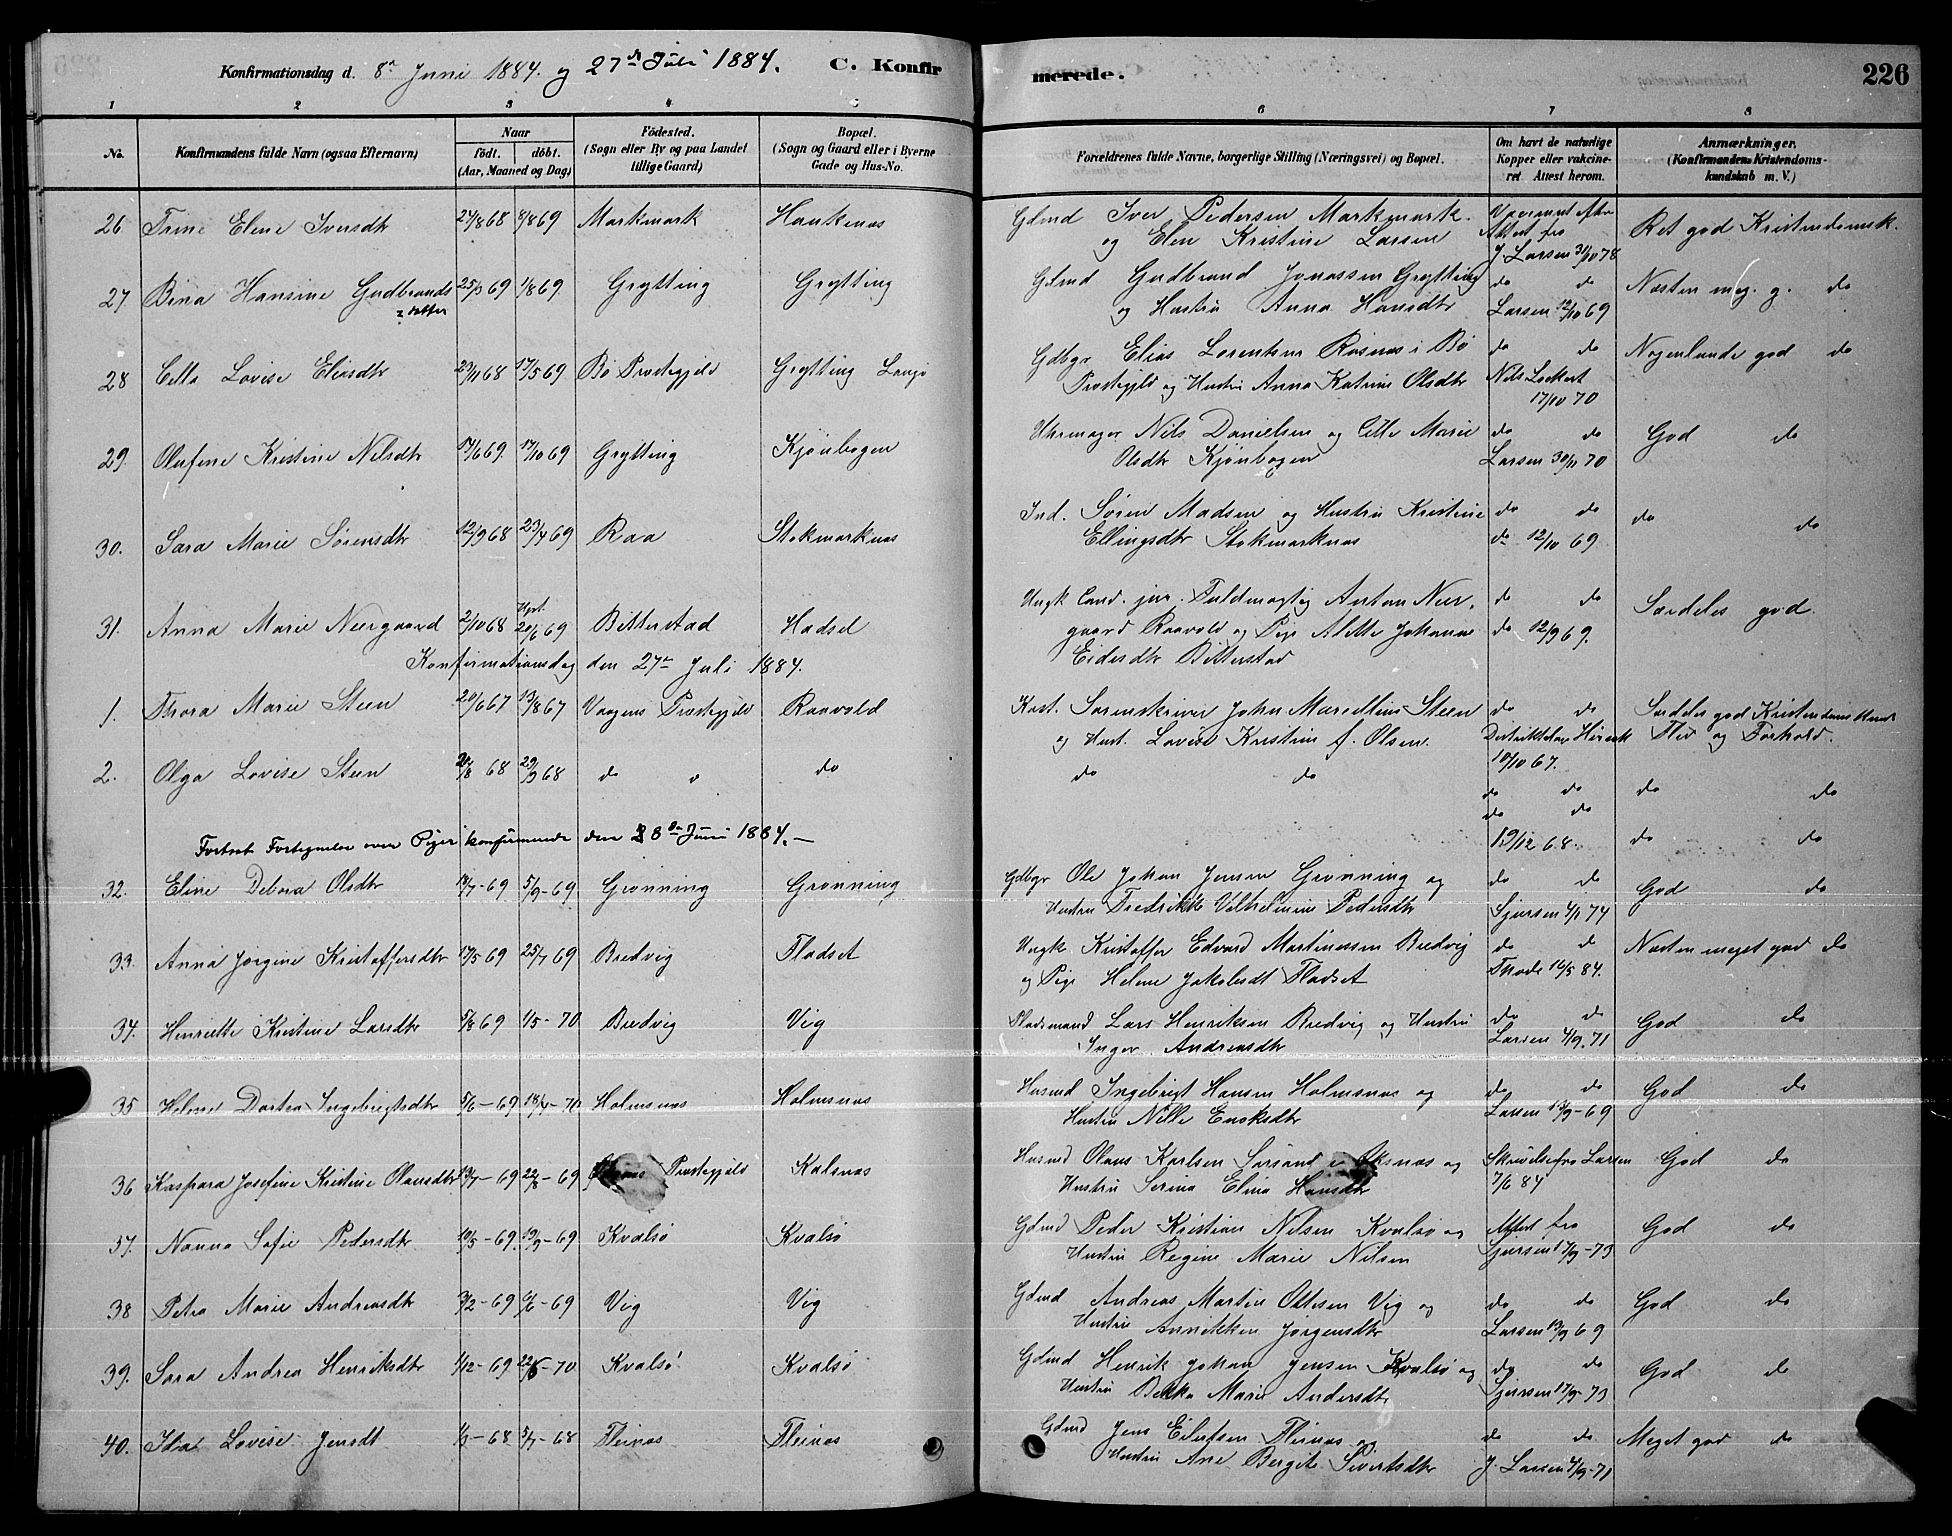 Konfirmationsdag d. 8de Juni 1884. og 27de Juli 1884. C. Konfirmerede. 226
1 2 3 4 5 6 7 8
No. Konfirmandens fulde Navn (ogsaa Efternavn) Naar födt. döbt. (Aar, Maaned og Dag) Födested. (Sogn eller By og paa Landet tillige Gaard) Bopæl. (Sogn og Gaard eller i Byerne Gade og Hus-No. Forældrenes fulde Navne, borgerlige Stilling (Næringsvei) og Bopæl. Om havt de naturlige Kopper eller vakcineret Attest herom. Anmærkninger. (Konfirmandens Kristendomskundskab m. V.)
26 Trine Elene Iversdtr 24/8 68 1/8 69 Markmark Haukenæs Gdmd Iver Pedersen Markmark. Vaccineret efter Ret god Kristendomsk.
og Elen Kristine Larsen Attest fra
J. Larsen 31/10 78
27 Bina Hansine Gudbrands 25/3 69 1/8 69 Grytting Grytting Gdmd Gudbrand Jonassen Grytting do do Næsten meg. g. do
datter og Hustru Anna Hansdtr Larsen 12/10 69
28 Cella Lovise Eliasdtr 23/11 68 17/5 69 Bø Præstegjeld Grytting Gdbgr Elias Lorentsen Røsnæs i Bø do do Nogenlunde god do
Præstegjeld og Hustru Anna Katrine Olsdtr Nils Lockert
17/10 70
29. Olufine Kristine Nilsdtr 14/6 69. 17/10 69 Grytting Kjönbogen Uhrmager Nils Danielsen og Cille Marie do do God do
Olsdtr Kjönbogen Larsen 30/11 70
30. Sara Marie Sörensdtr 12/9 68 23/4 69 Raa Stokmarknæs Ind. Sören Madsen og Hustru Kristine do do do do
Ellingsdtr Stokmarknæs do 12/10 69
31. Anna Marie Neergaard 2/10 68 20/6 69 Bitterstad Hadsel Ungk Cand. jur. Fuldmægtig Anton Neer- do do Særdeles god.
gaard Raavold og Pige Alette Johanna do 12/9 69.
Eidersdtr Bitterstad
Konfirmationsdag den 27de Juli 1884.
1. Thora Marie Steen 20/6 67 13/8 67 Vaagens Præstegjeld Raavold Kst. Sorenskriver Johan Marcellius Steen do do Særdeles god Kristendomskund
og Hust. Lovise Kristine f. Olsen. Flid og Forhold.
10/10 67.
2. Olga Lovise Steen 20/8 68 29/9 68 do do do do do do do do
do do
19/12 68. do do
Fortsat Fortegnelse over Piger konfirmerede den 8de Juni 1884.
32. Eline Debora Olsdtr 18/7-69 5/9-69 Grönning Grönning Gdbgr Ole Johan Jensen Grönning og do do God do
Hustru Fredrikke Vilhelmine Pedersdtr Sjursen 4/1 74
33. Anna Jörgine Kristoffersdtr 17/5 69 25/7 69 Bredvig Fladset Ungk Kristoffer Edvard Martinussen Bredvig do do Næsten meget god do
og Pige Helene Jakobsdt Fladset Thode 16/5 84.
34. Henriette Kristine Larsdtr 5/8 69 1/5-70 Bredvig Vig Pladsmand Lars Henriksen Bredvig og Hustru do do God do
Inger Andreasdtr Larsen 4/9. 71
35 Helene Dortea Ingebrigtsdtr 5/6-69 18/4-70 Holmsnæs Holmsnæs Husmd Ingebrigt Hansen Holmsnæs og do do God do
Hustru Nille Enoksdtr Larsen 13/9-69
36 Kaspara Josefine Kristine Olausdtr 13/7-69 22/8-69 Præstegjeld Kalsnæs Husmd Olaus Karlsen Øksnæs og Skrivelse fra Larsen God do
Hustru Serina Elina Hansdtr 7/6 84
37. Nanna Sofie Pedersdtr 10/5-69. 19/9-69 Kvalsö Kvalsö Gdmd Peder Kristian Nilsen Kvalsö og Attest fra God do
Hustru Regine Marie Nilsen Sjursen 17/9-73
38 Petra Marie Andreasdtr 3/2-69 6/6-69 Vig Vig Gdmd Andreas Martin Ottesen Vig og do do God do
Hustru Annikken Jörgensdtr Larsen 13/9 69
39. Sara Andrea Henriksdtr 1/12-69 22/5-70 Kvalsö Kvalsö Gdmd Henrik Johan Jensen Kvalsö og do do God do
Hustru Bekka Marie Andersdtr Sjursen 17/9-73
40. Ida Lovise Jensdt 1/3-68 5/7-68 Fleinæs Fleinæs Gdmd Jens Eilertsen Fleinæs og do do Meget god do
Hustru Ane Bergite Sivertsdtr J. Larsen 4/9-71